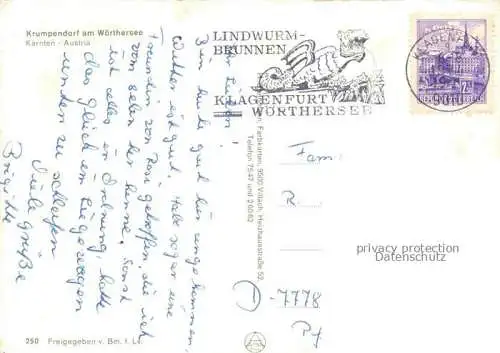 Krumpendorf am Wörthersee
Kärnten - Austria
LINDWURM-
BRUNNEN
KLAGENFURT
WÖRTHERSEE
KLAGENFURT
9010
Ihr Lieben!
Bin heute gut hier angekommen.
Wetter ist gut. Habe sogar eine
Freundin von Rosi getroffen, die ich
vom sehen her kenne. Sonst
ist alles in Ordnung, hatte
das Glück im Liegewagen
unten zu schlafen
Viele Grüße
Brigitte
Farbkarten, 9500 Villach, Heizhausstraße 52,
Telefon 7547 und 20062
Fam.
R.
D-7778
privacy protection
Datenschutz
250 Freigegeben v. Bm. f. Lv.